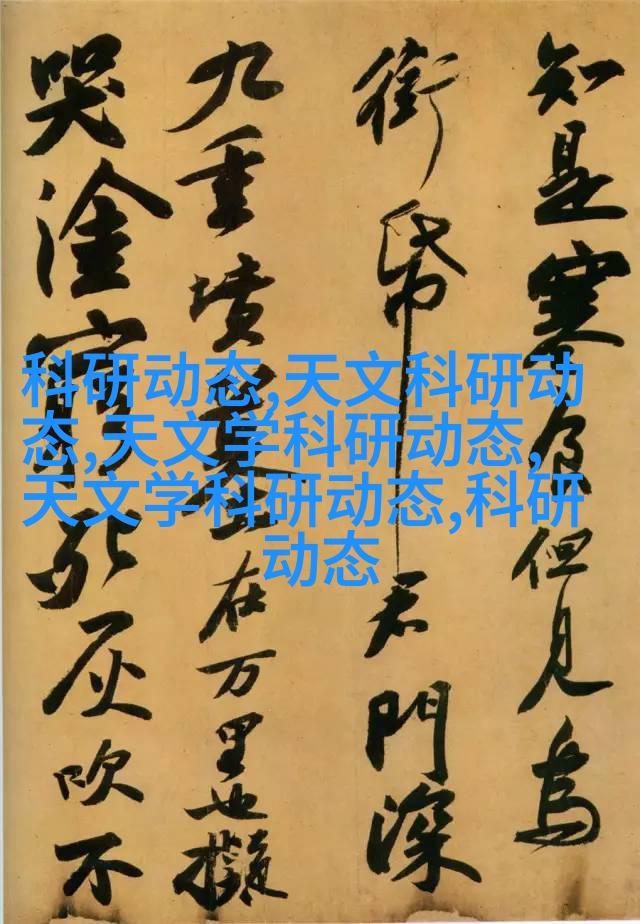 知是寒食但見烏
銜帋君門深
九重墳墓在万里也擬
哭塗窮死灰吹不
科研动态,天文科研动
态,天文学科研动态,
天文学科研动态,科研
动态